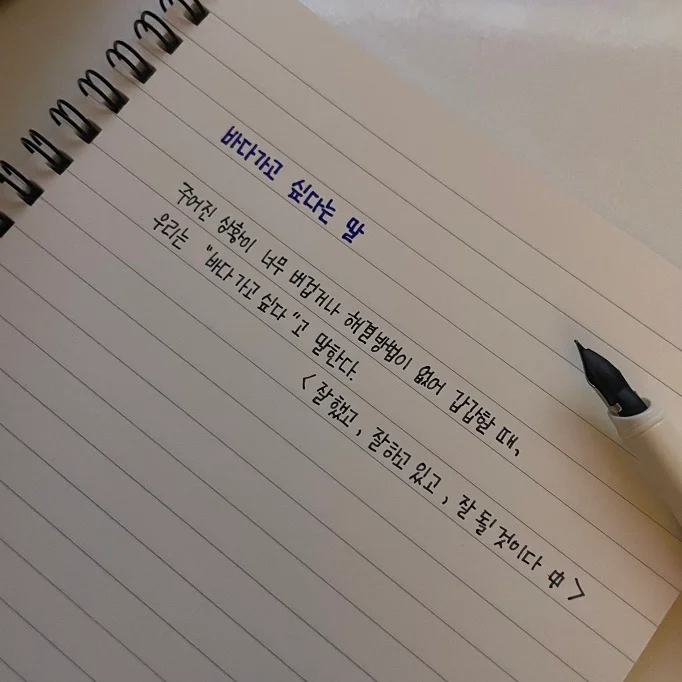 바다가고 싶다는 말
주어진 상황이 너무 버겁거나 해결방법이 없어 갑갑할 때,
우리는 "바다 가고 싶다"고 말한다.
<잘했고, 잘하고 있고, 잘 될 것이다 中>